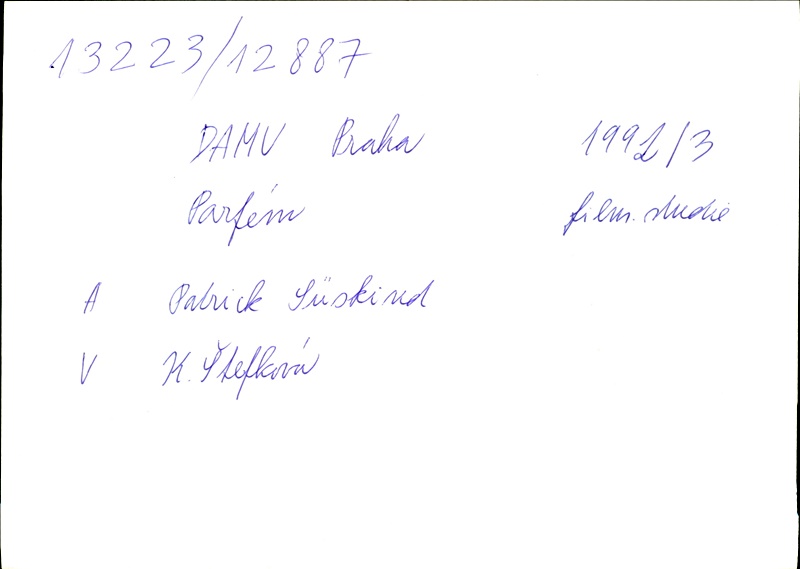 13223/12887
DAMU Praha 1992/3
Parfém film. studie
A Patrick Süskind
V K. Štefková